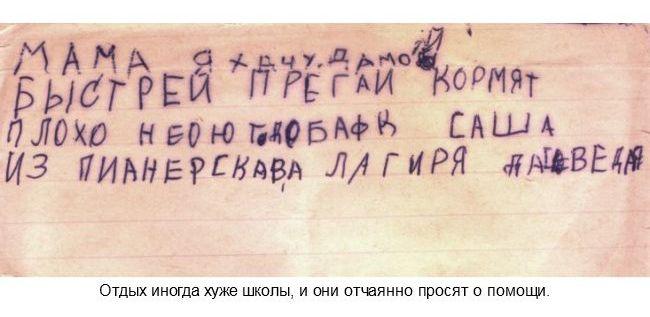 МАМА Я ХАЧУ ДАМОЙ
БЫСТРЕЙ ПРЕГАИ КОРМЯТ
ПЛОХО НЕ САША
ИЗ ПИАНЕРСКАВА ЛАГИРЯ
Отдых иногда хуже школы, и они отчаянно просят о помощи.